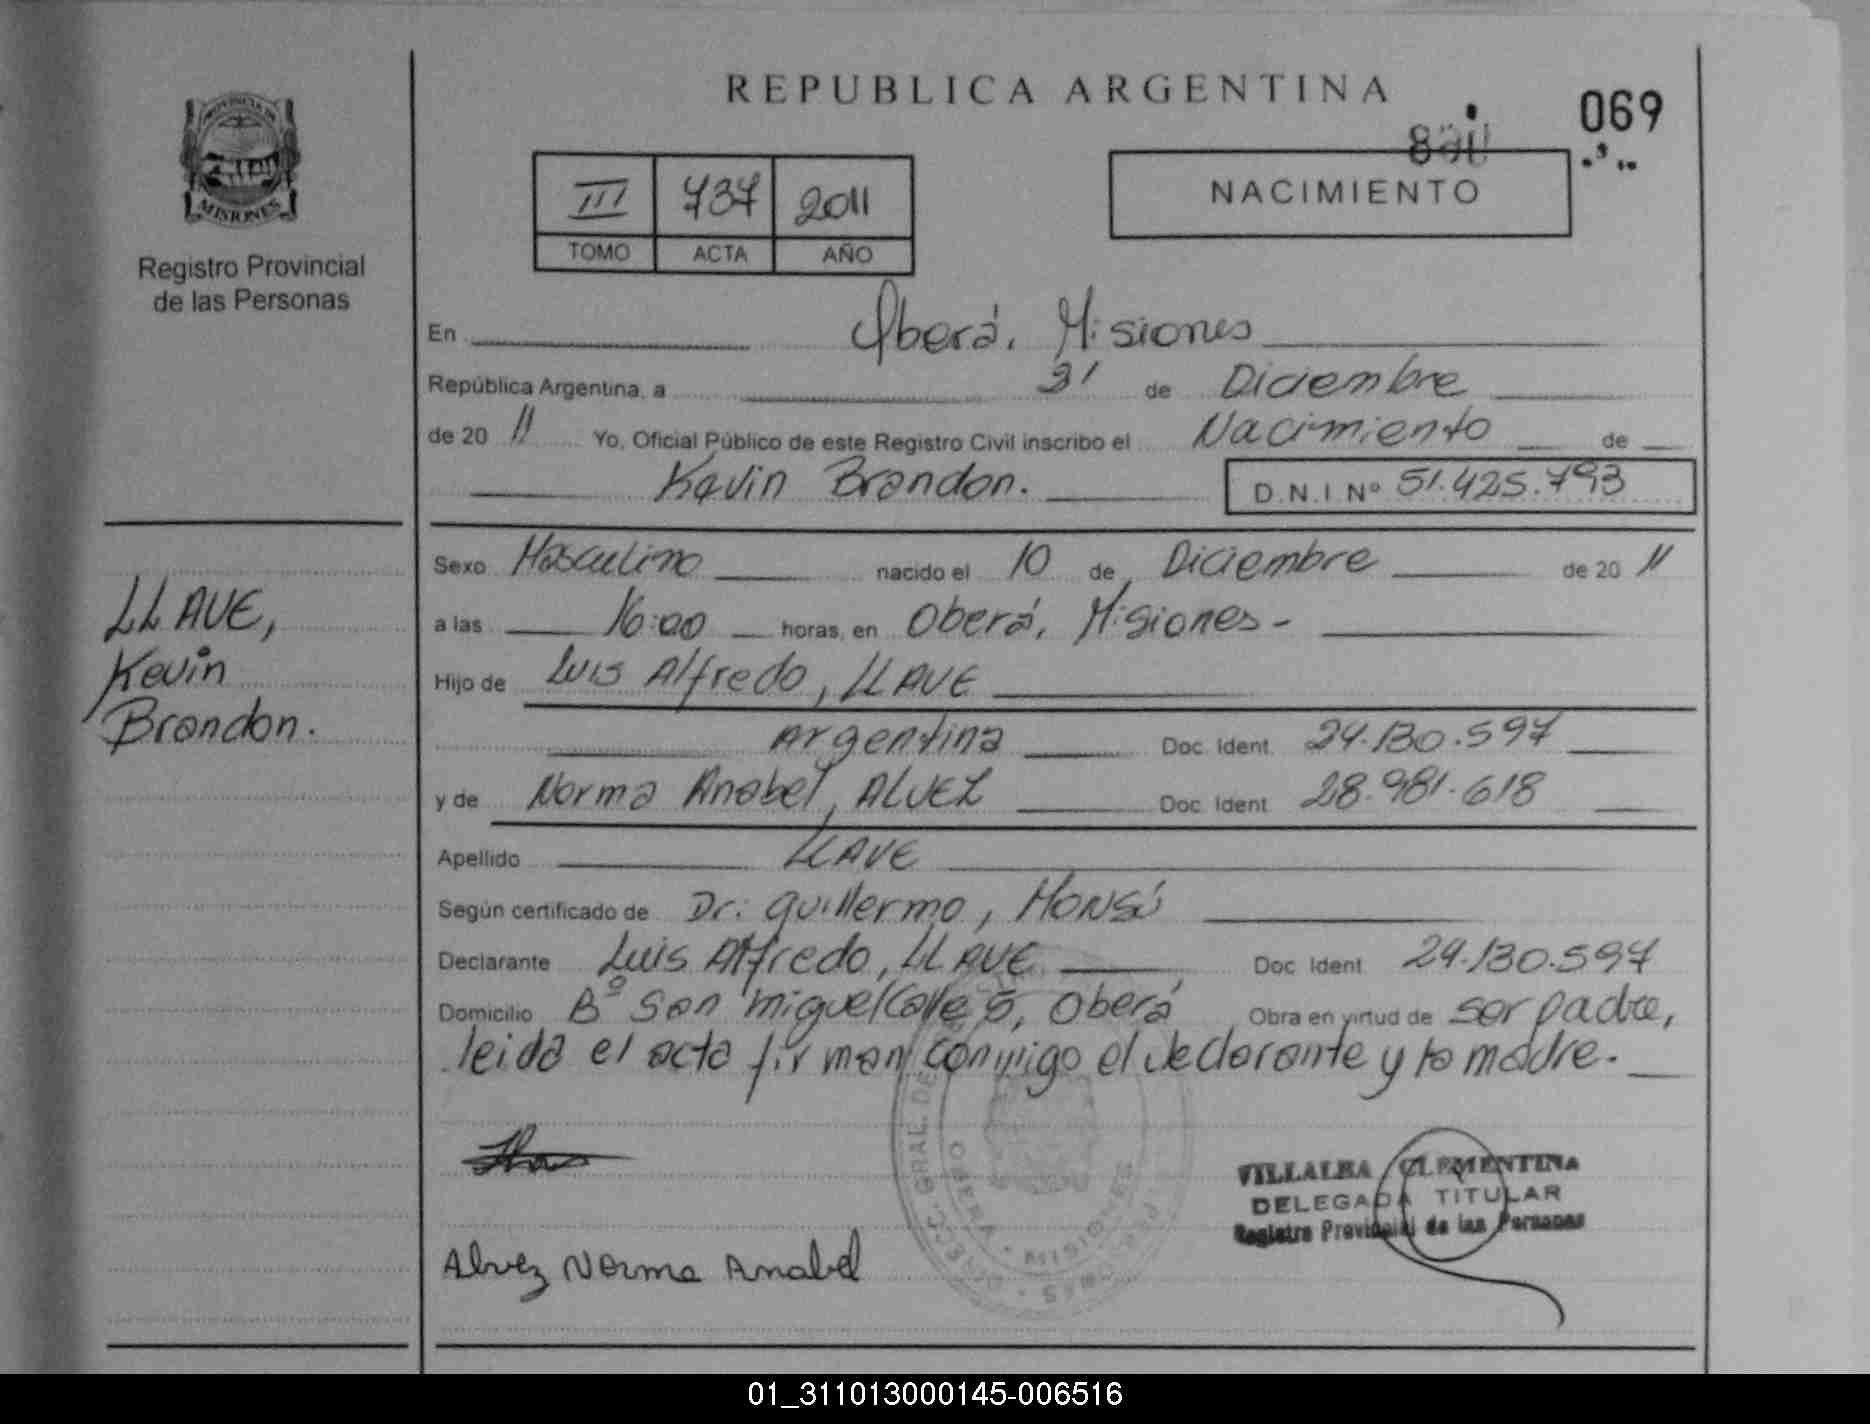 REPUBLICA ARGENTINA
069
PROVINCIA DE
MISIONES
Registro Provincial
de las Personas
III 737 2011
TOMO ACTA AÑO
NACIMIENTO
En Oberá, Misiones
República Argentina, a 31 de Diciembre
de 20 11 Yo, Oficial Público de este Registro Civil inscribo el Nacimiento de
Kevin Brandon. D.N.I Nº 51.425.793
LLAVE,
Kevin
Brandon.
Sexo Masculino nacido el 10 de Diciembre de 20 11
a las 16:00 horas, en Oberá, Misiones -
Hijo de Luis Alfredo, LLAVE
Argentina Doc. Ident. 24.130.597
y de Norma Anabel, ALVEZ Doc. Ident. 28.981.618
Apellido LLAVE
Según certificado de Dr: Guillermo, MONSÚ
Declarante Luis Alfredo, LLAVE Doc. Ident. 24.130.597
Domicilio Bº San Miguel Calle 5, Oberá Obra en virtud de ser padre,
leida el acta firman conmigo el declarante y la madre.
DIRECC. GRAL. DE
PERSONAS
OBERA - MISIONES
VILLALBA CLEMENTINA
DELEGADA TITULAR
Registro Provincial de las Personas
Alvez Norma Anabel
01_311013000145-006516